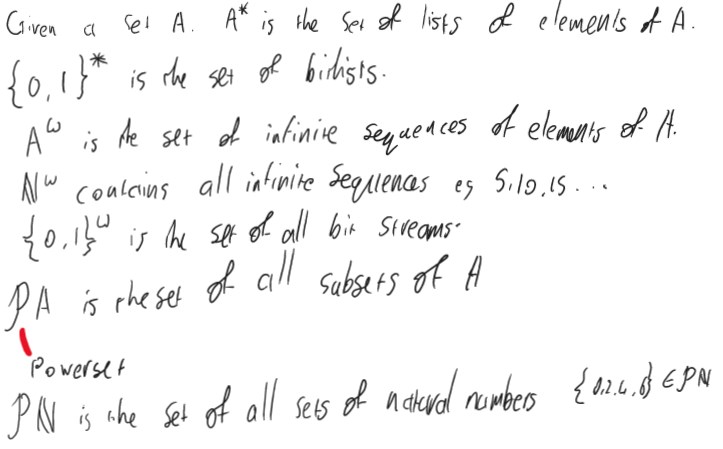 Given a set A. A* is the set of lists of elements of A.
{0,1}* is the set of bitlists.
A^ω is the set of infinite sequences of elements of A.
ℕ^ω contains all infinite sequences eg 5,10,15...
{0,1}^ω is the set of all bit streams.
𝒫A is the set of all subsets of A
Powerset
𝒫ℕ is the set of all sets of natural numbers {0,2,4,6} ∈ 𝒫ℕ